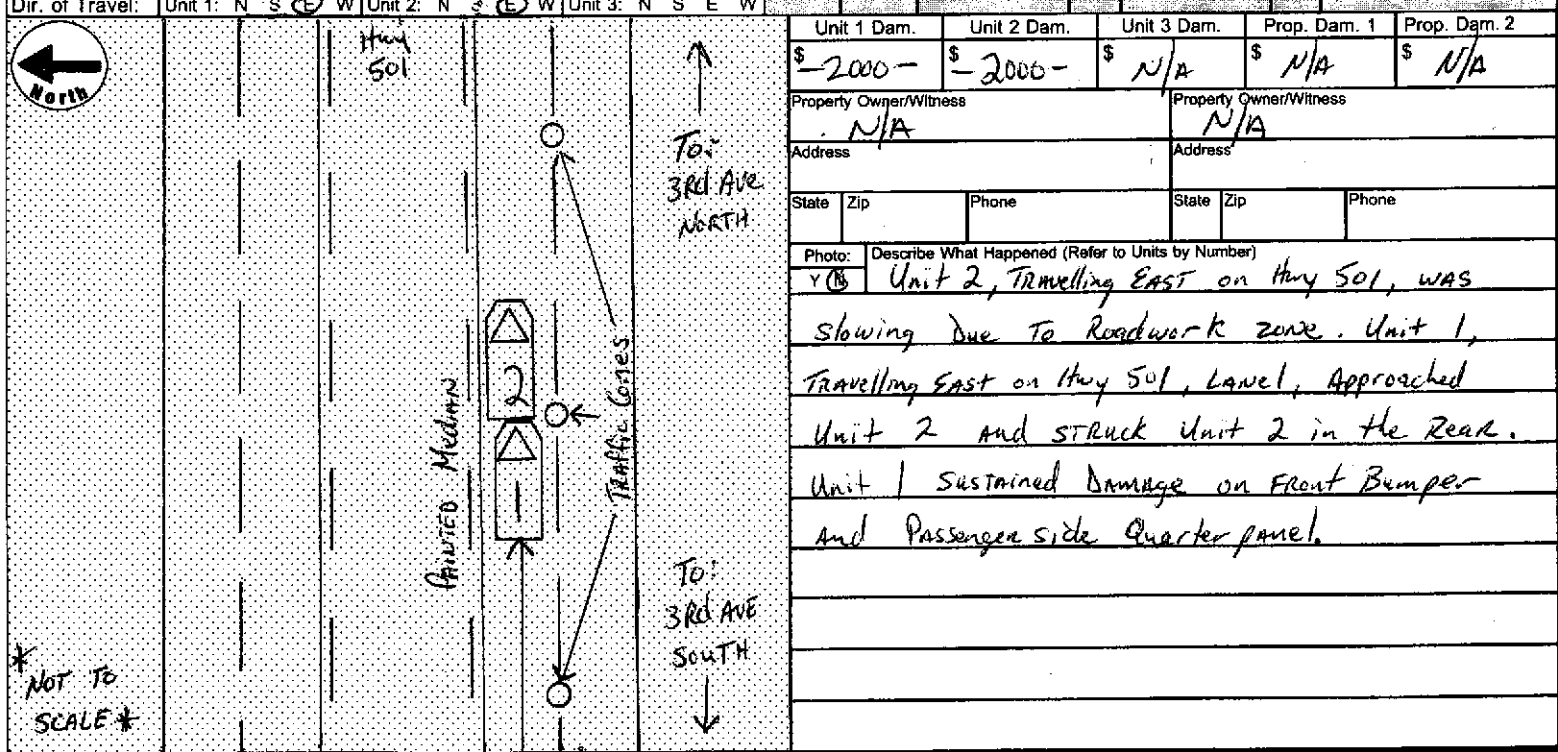 Dir. of Travel: Unit 1: N S E W Unit 2: N S E W Unit 3: N S E W
North
Hwy
501
To:
3Rd Ave
NORTH
PAINTED Median
2
1
Traffic Cones
To:
3Rd AVE
SOUTH
* NOT TO
SCALE *
Unit 1 Dam. Unit 2 Dam. Unit 3 Dam. Prop. Dam. 1 Prop. Dam. 2
$ -2000- $ -2000- $ N/A $ N/A $ N/A
Property Owner/Witness Property Owner/Witness
N/A N/A
Address Address
State Zip Phone State Zip Phone
Photo: Describe What Happened (Refer to Units by Number)
Y N Unit 2, Travelling EAST on Hwy 501, WAS
Slowing Due To Roadwork zone. Unit 1,
Travelling EAST on Hwy 501, Lane 1, Approached
Unit 2 And STRUCK Unit 2 in the Rear.
Unit 1 Sustained Damage on Front Bumper
And Passenger side Quarter panel.